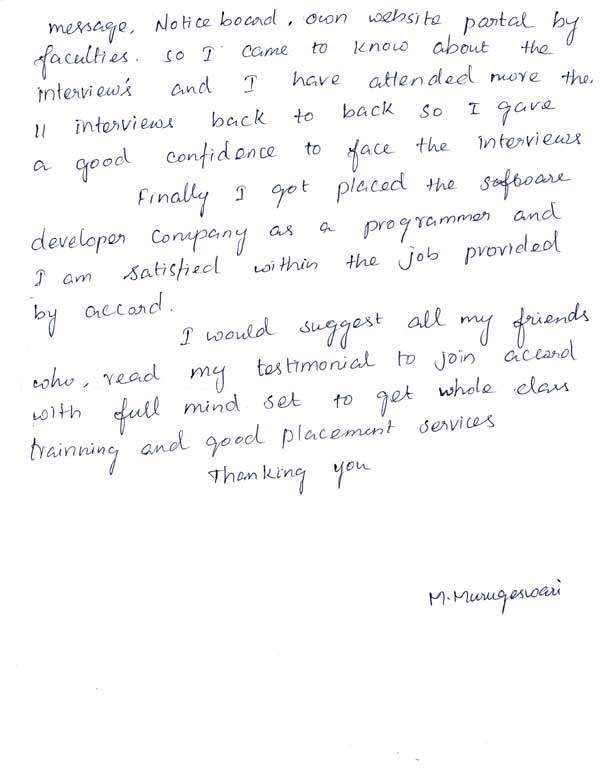 message, Notice board, own website portal by
faculties. so I came to know about the
interview's and I have attended more the.
11 interviews back to back so I gave
a good confidence to face the interviews
Finally I got placed the software
developer company as a programmer and
I am satisfied within the job provided
by accord.
I would suggest all my friends
who, read my testimonial to join accord
with full mind set to get whole class
trainning and good placement services
Thanking you
M.Murugeswari